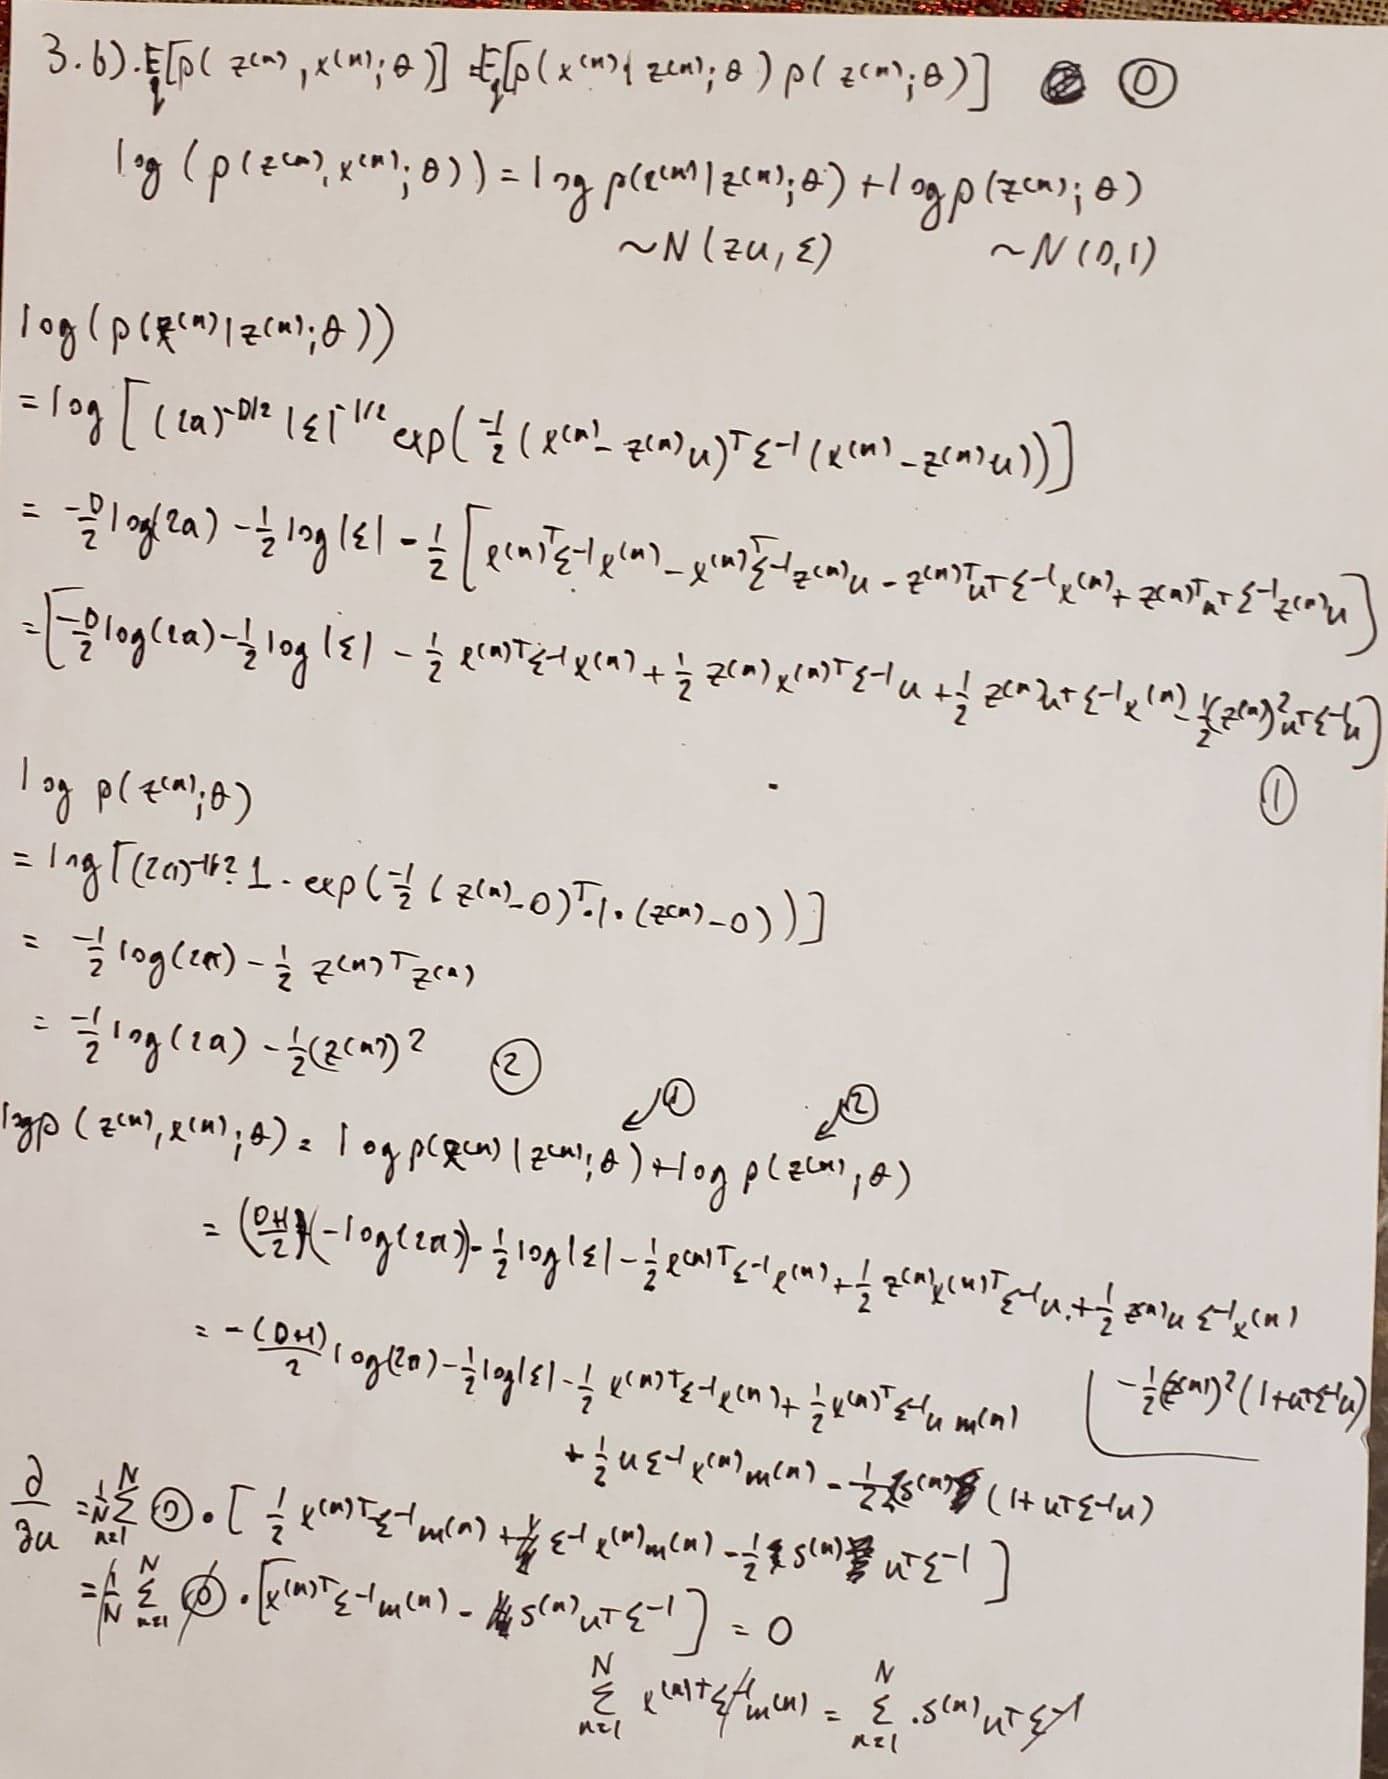 3.b). E_q[p(z^(n), x^(n); θ)] = E_q[p(x^(n) | z^(n); θ) p(z^(n); θ)] ⓪
log (p(z^(n), x^(n); θ)) = log p(x^(n) | z^(n); θ) + log p(z^(n); θ)
~N(zu, Σ) ~N(0,1)
log(p(x^(n) | z^(n); θ))
= log [(2π)^-D/2 |Σ|^-1/2 exp(-1/2 (x^(n) - z^(n)u)^T Σ^-1 (x^(n) - z^(n)u))]
= -D/2 log(2π) - 1/2 log|Σ| - 1/2 [x^(n)T Σ^-1 x^(n) - x^(n)T Σ^-1 z^(n)u - z^(n)T u^T Σ^-1 x^(n) + z^(n)T u^T Σ^-1 z^(n)u]
= [-D/2 log(2π) - 1/2 log|Σ| - 1/2 x^(n)T Σ^-1 x^(n) + 1/2 z^(n) x^(n)T Σ^-1 u + 1/2 z^(n) u^T Σ^-1 x^(n) - 1/2 (z^(n))^2 u^T Σ^-1 u]
①
log p(z^(n); θ)
= log [(2π)^-1/2 · 1 · exp(-1/2 (z^(n) - 0)^T · 1 · (z^(n) - 0))]
= -1/2 log(2π) - 1/2 z^(n)T z^(n)
= -1/2 log(2π) - 1/2 (z^(n))^2 ②
↙① ↙②
log p(z^(n), x^(n); θ) = log p(x^(n) | z^(n); θ) + log p(z^(n); θ)
= (D+1/2)(-log(2π)) - 1/2 log|Σ| - 1/2 x^(n)T Σ^-1 x^(n) + 1/2 z^(n) x^(n)T Σ^-1 u + 1/2 z^(n) u Σ^-1 x^(n)
- 1/2 (z^(n))^2 (1 + u^T Σ^-1 u)
= -(D+1)/2 log(2π) - 1/2 log|Σ| - 1/2 x^(n)T Σ^-1 x^(n) + 1/2 x^(n)T Σ^-1 u m^(n)
+ 1/2 u Σ^-1 x^(n) m^(n) - 1/2 s^(n) (1 + u^T Σ^-1 u)
∂/∂u = 1/N Σ_{n=1}^N ⓪ · [1/2 x^(n)T Σ^-1 m^(n) + Σ^-1 x^(n) m^(n) - 1/2 s^(n) u^T Σ^-1]
= 1/N Σ_{n=1}^N ⓪ · [x^(n)T Σ^-1 m^(n) - s^(n) u^T Σ^-1] = 0
Σ_{n=1}^N x^(n)T Σ^-1 m^(n) = Σ_{n=1}^N · s^(n) u^T Σ^-1